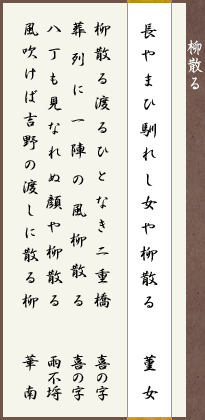 柳散る
長やまひ馴れし女や柳散る　菫女
柳散る渡るひとなき二重橋　喜の字
葬列に一陣の風柳散る　喜の字
八丁も見なれぬ顔や柳散る　雨不埒
風吹けば吉野の渡しに散る柳　華南